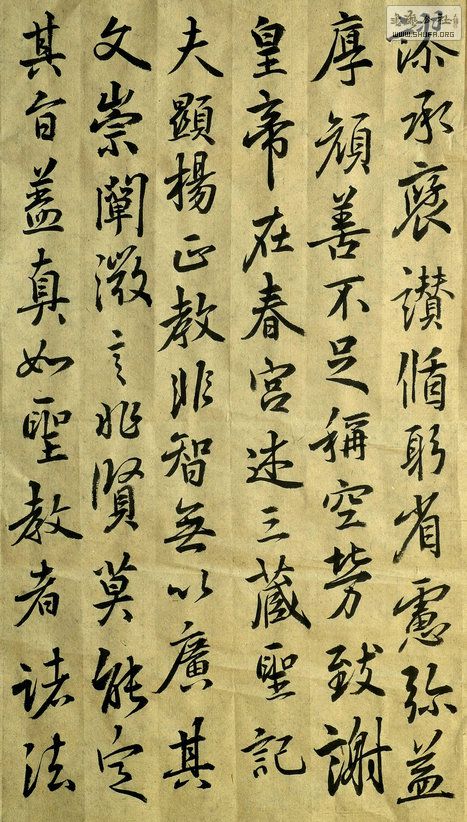 謬承褒讚循躬省慮弥益
厚顔善不足稱空勞致謝
皇帝在春宮述三藏聖記
夫顯揚正教非智無以廣其
文崇闡微言非賢莫能定
其旨蓋真如聖教者諸法
WWW.SHUFA.ORG